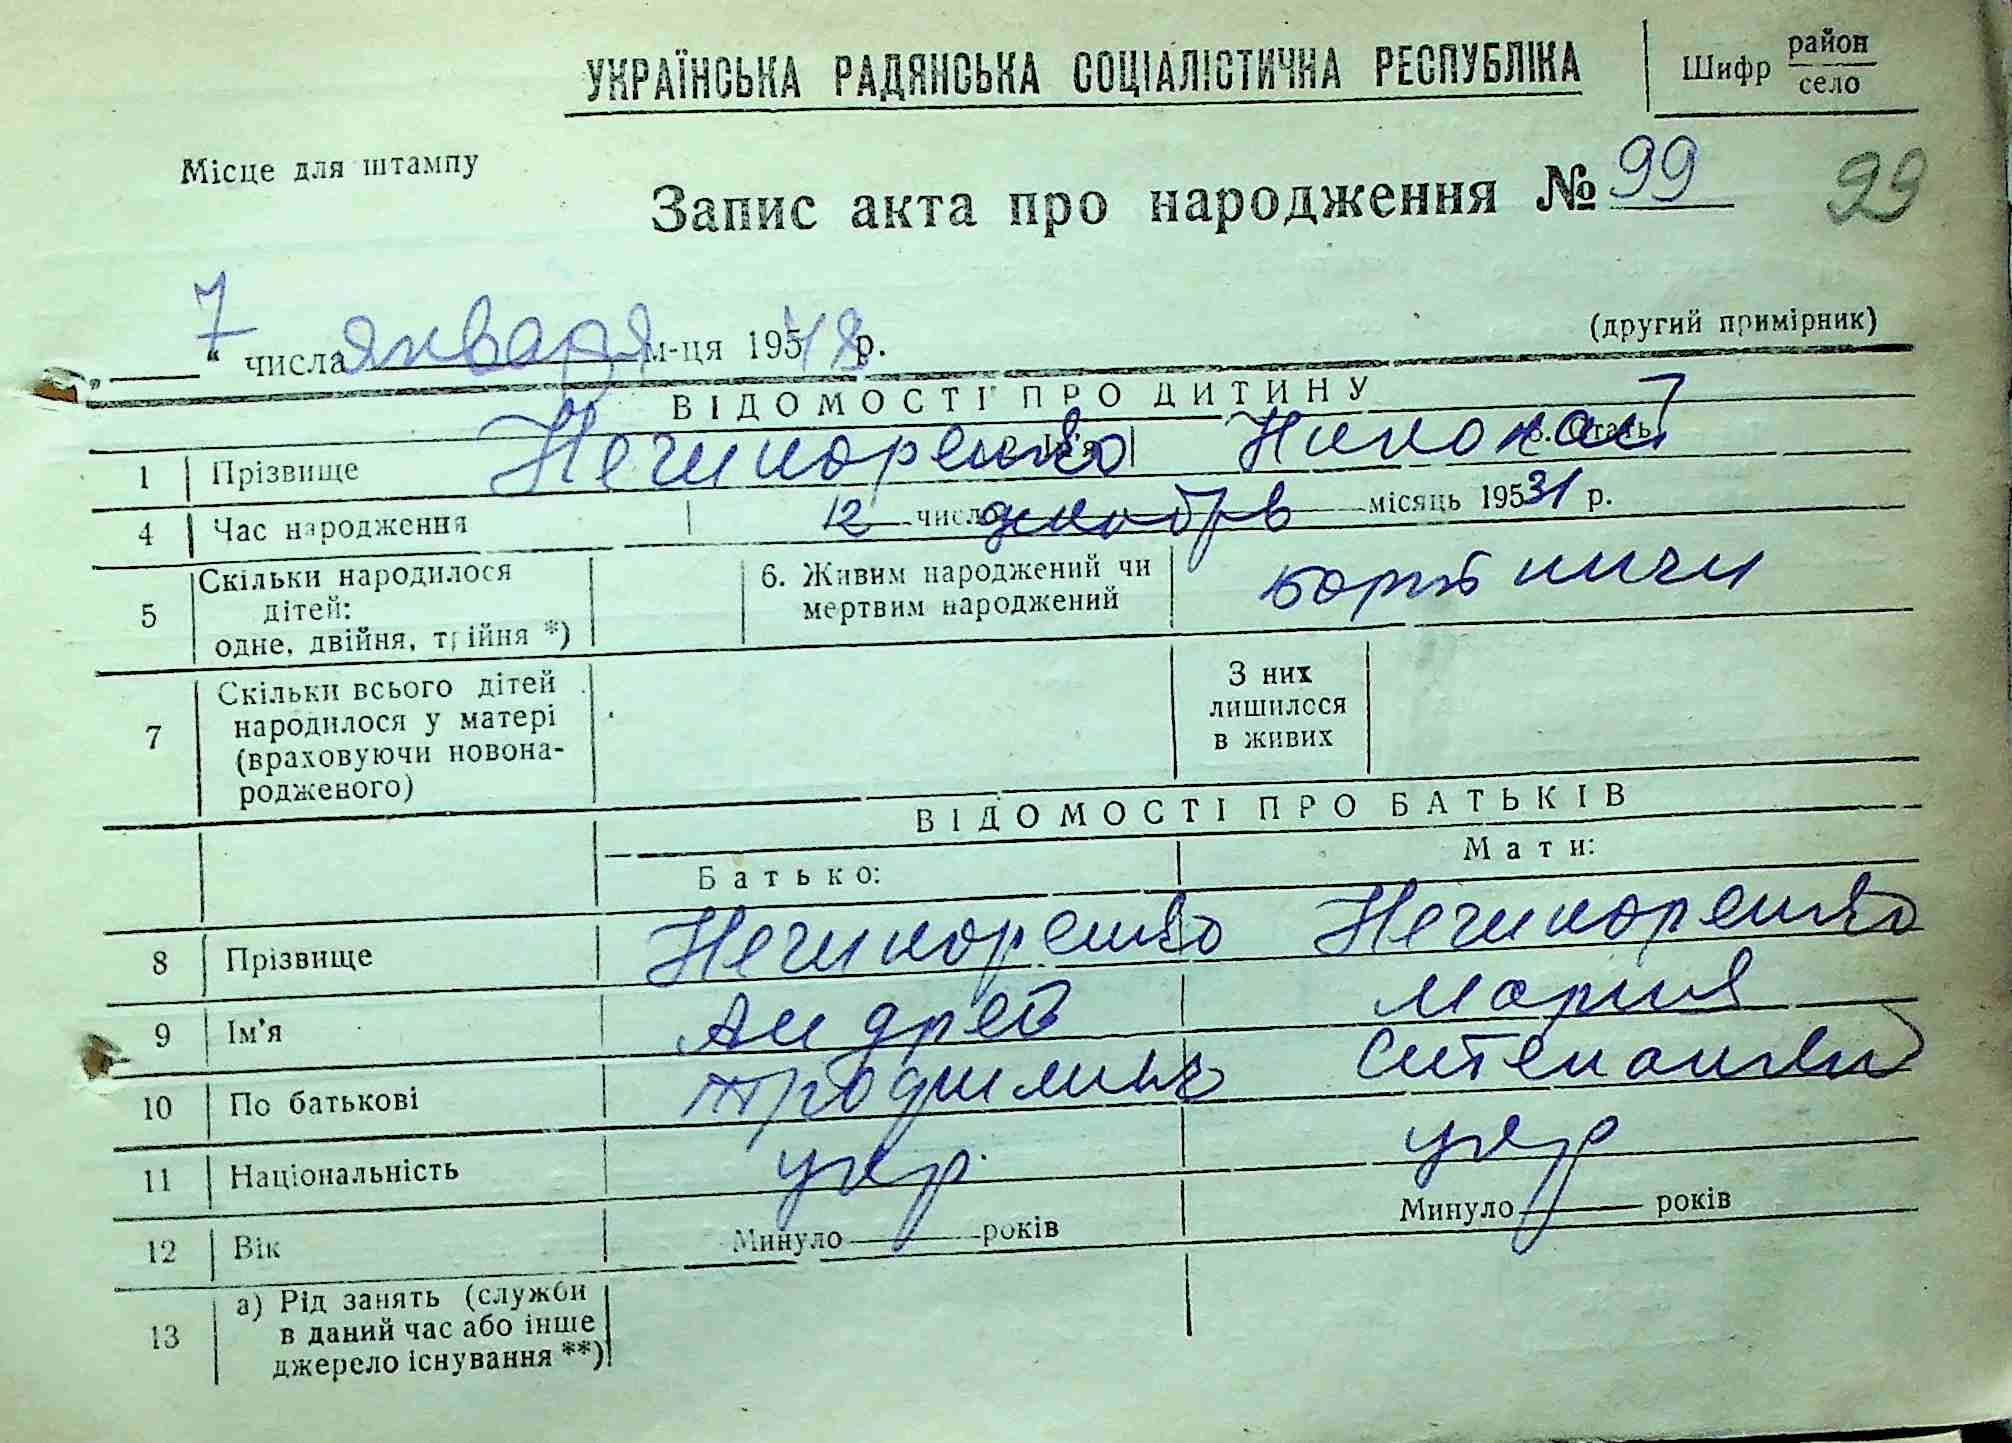 УКРАЇНСЬКА РАДЯНСЬКА СОЦІАЛІСТИЧНА РЕСПУБЛІКА
Шифр район
село
Місце для штампу
Запис акта про народження № 99 99
„7“ числа января м-ця 195 48 р.
(другий примірник)
ВІДОМОСТІ ПРО ДИТИНУ
1 Прізвище Нечипоренко 2. Ім'я Николай 3. Стать
4 Час народження 12 число декабря місяць 195 31 р.
5 Скільки народилося дітей: одне, двійня, трійня *) 6. Живим народжений чи мертвим народжений Бортничи
7 Скільки всього дітей народилося у матері (враховуючи новонародженого) З них лишилося в живих
ВІДОМОСТІ ПРО БАТЬКІВ
Батько: Мати:
8 Прізвище Нечипоренко Нечипоренко
9 Ім'я Андрей Мария
10 По батькові Трофимыч Степановна
11 Національність укр. укр
12 Вік Минуло років Минуло років
13 а) Рід занять (служби в даний час або інше джерело існування **)